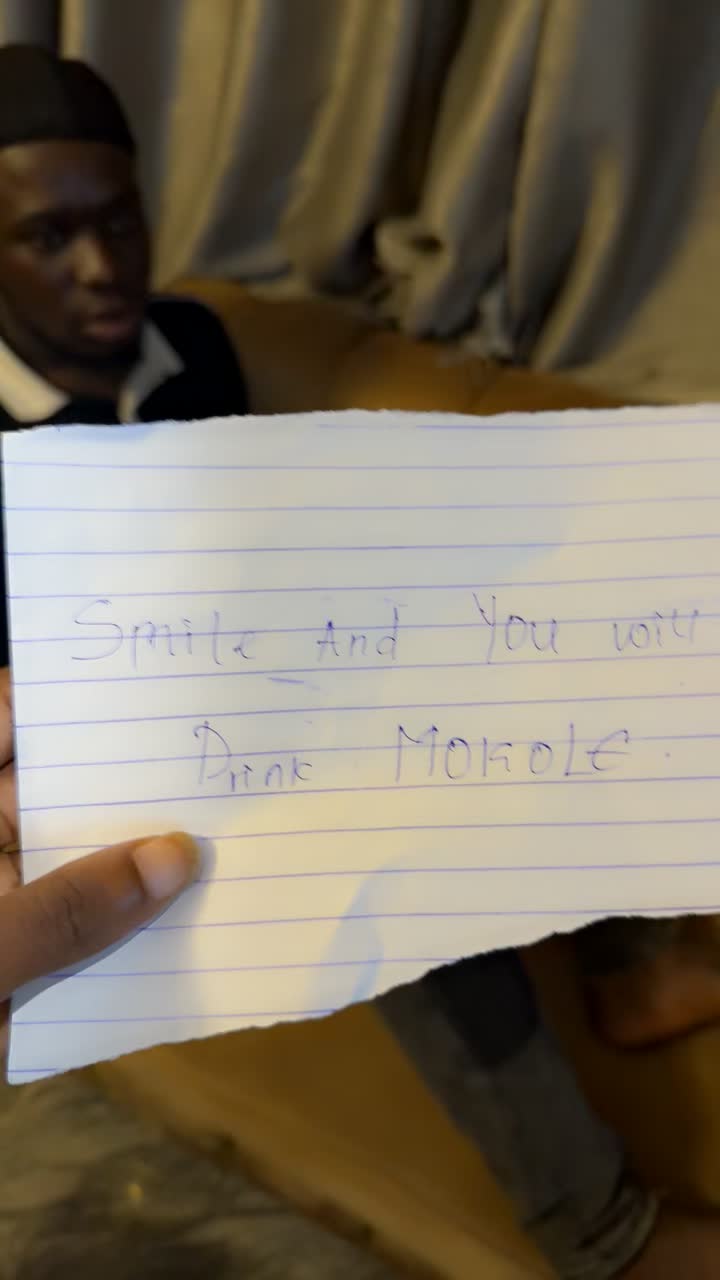 Smile And You will
Drink MOKOLE.